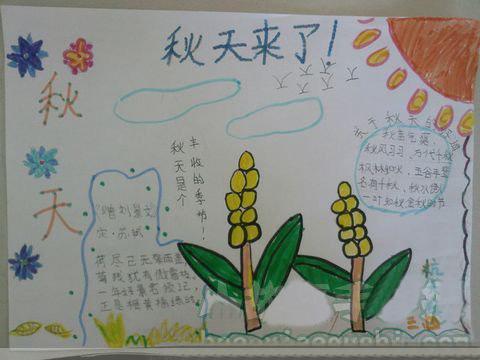 秋天来了!
秋
天
秋天是个
丰收的季节!
赠刘景文
苏轼
荷尽已无擎雨盖
菊残犹有傲霜枝
一年好景君须记
正是橙黄橘绿时
关于秋天的成语
秋高气爽
秋风习习
枫林如火、五谷丰登
各有千秋、秋水伊人
三四